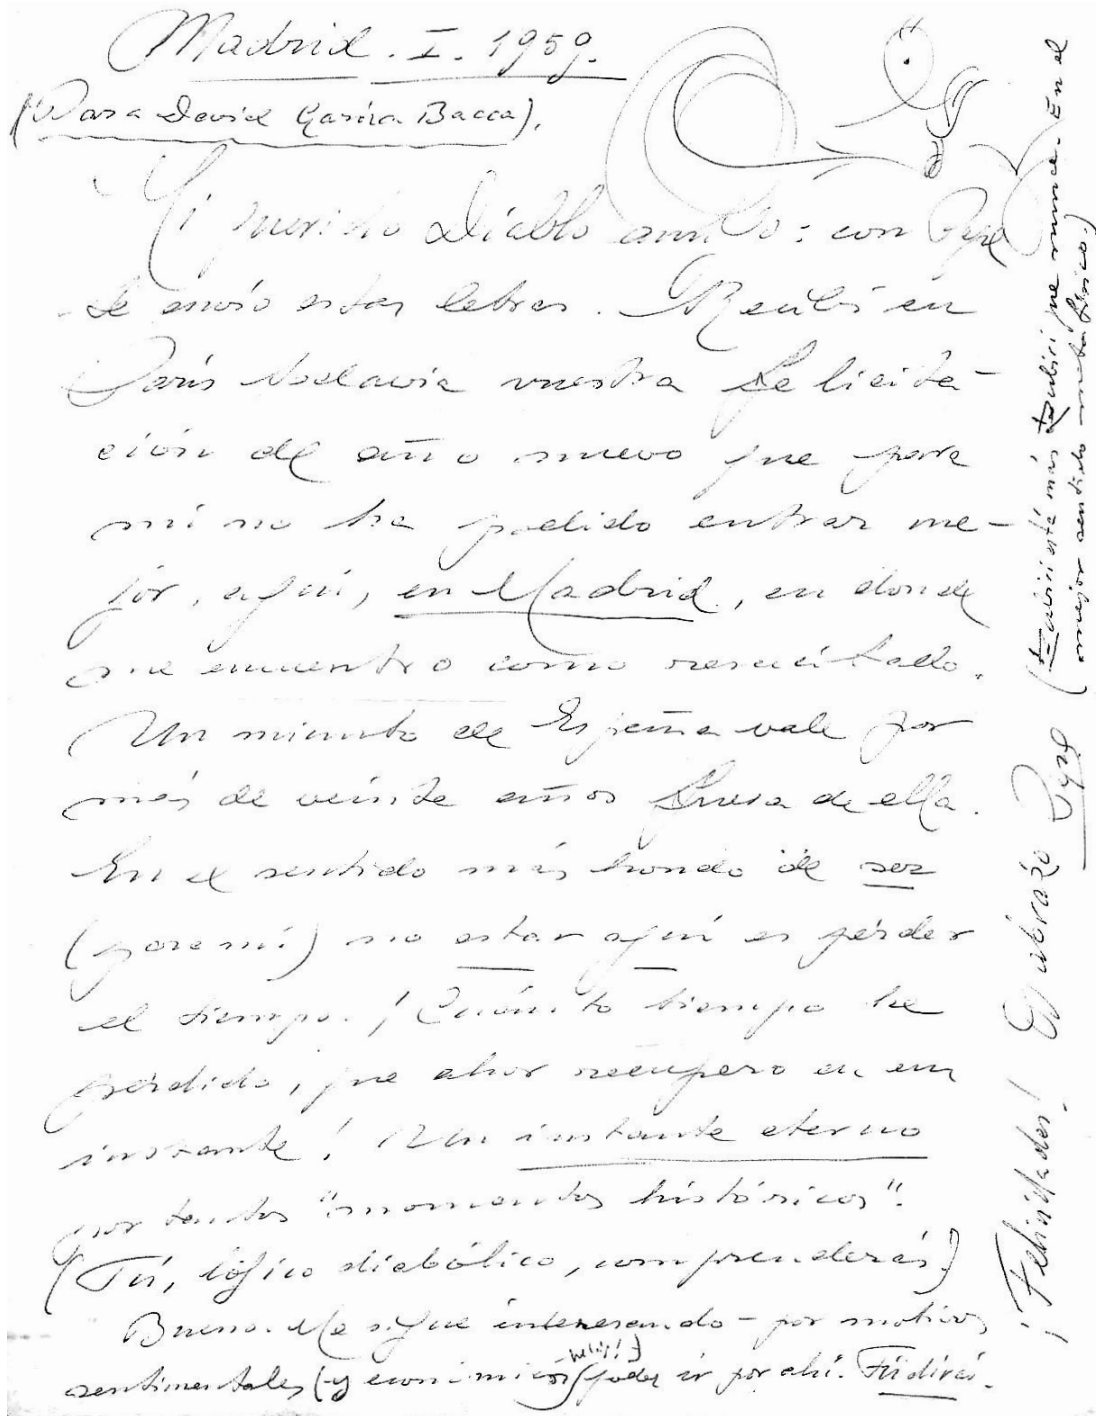 Madrid. I. 1959.
(Para David García Bacca).
Mi querido Diablo amigo: con Pepe
te envío estas letras. Recibí en
París todavía vuestra felicita-
ción de año nuevo que para
mí no ha podido entrar me-
jor, aquí, en Madrid, en donde
me encuentro como resucitado.
Un minuto de España vale por
más de veinte años fuera de ella.
En el sentido más hondo de ser
(para mí) no estar aquí es perder
el tiempo. ¡Cuánto tiempo he
perdido, que ahor recupero en un
instante! Un instante eterno
por tantos "momentos históricos".
(Tú, lógico diabólico, comprenderás.)
Bueno. Me sigue interesando - por motivos
sentimentales (y económicos) poder ir por ahí. Tú dirás.
¡Felicidades! abrazo Pepe
está más que nunca. En el
mejor sentido metafísico.)